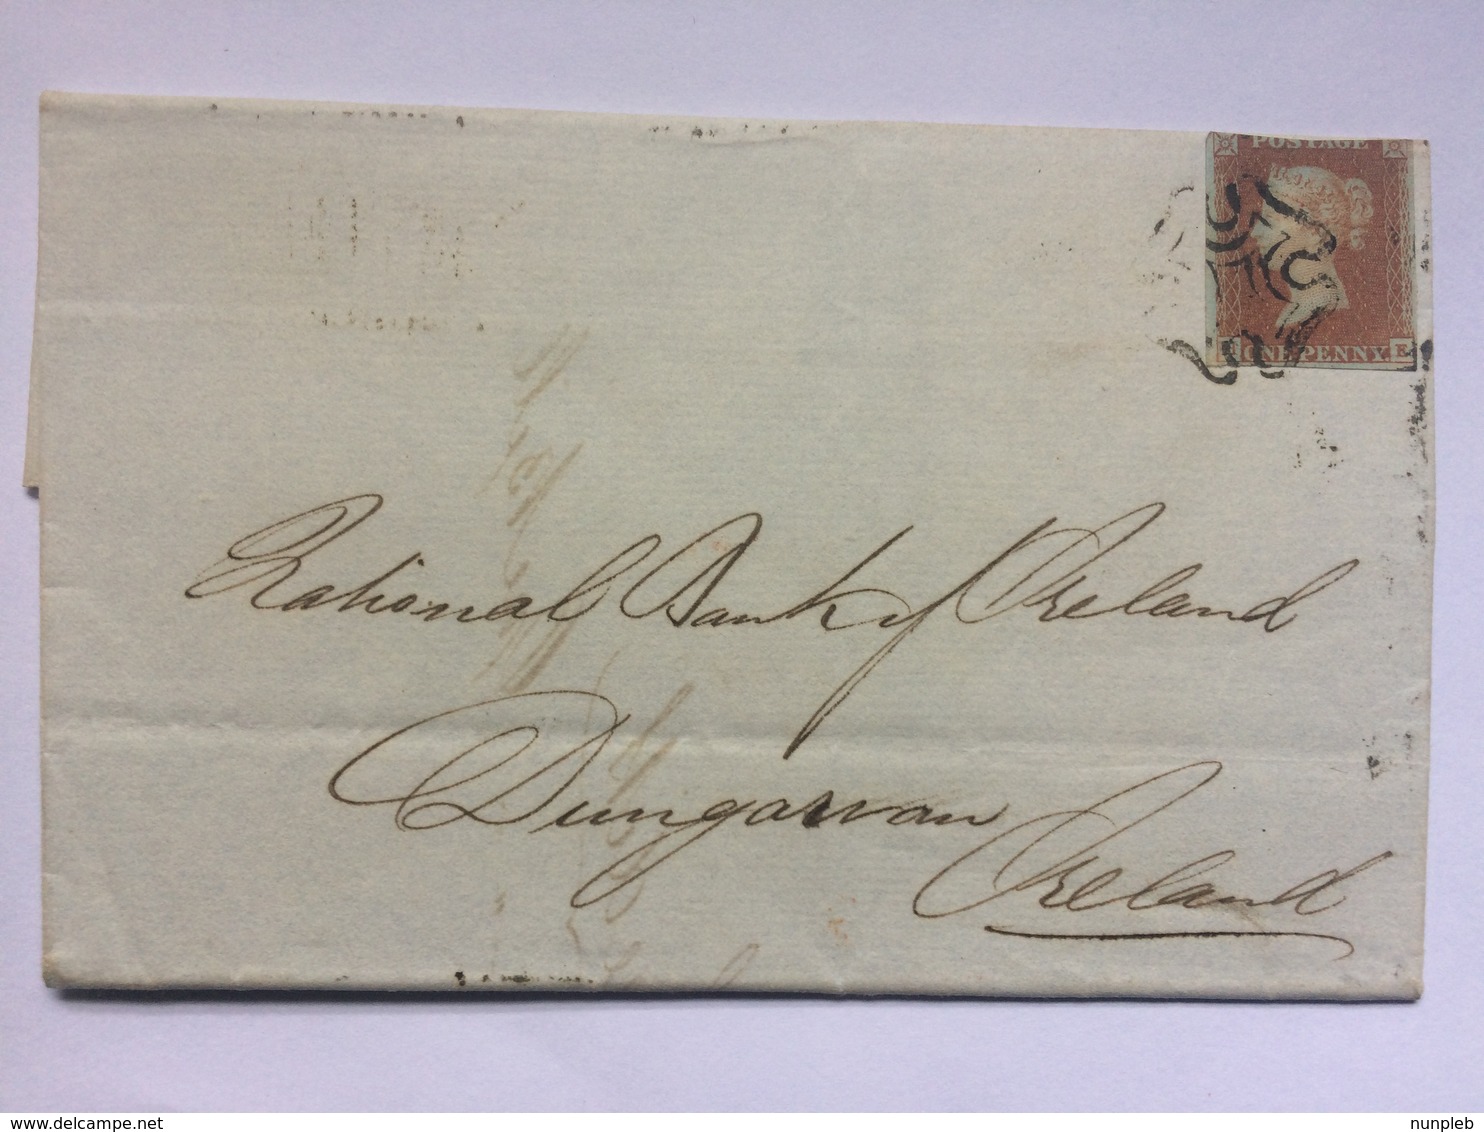 POSTAGE
ONE PENNY E
National Bank of Ireland
Dungarvan
Ireland
© delcampe.net
nunpleb